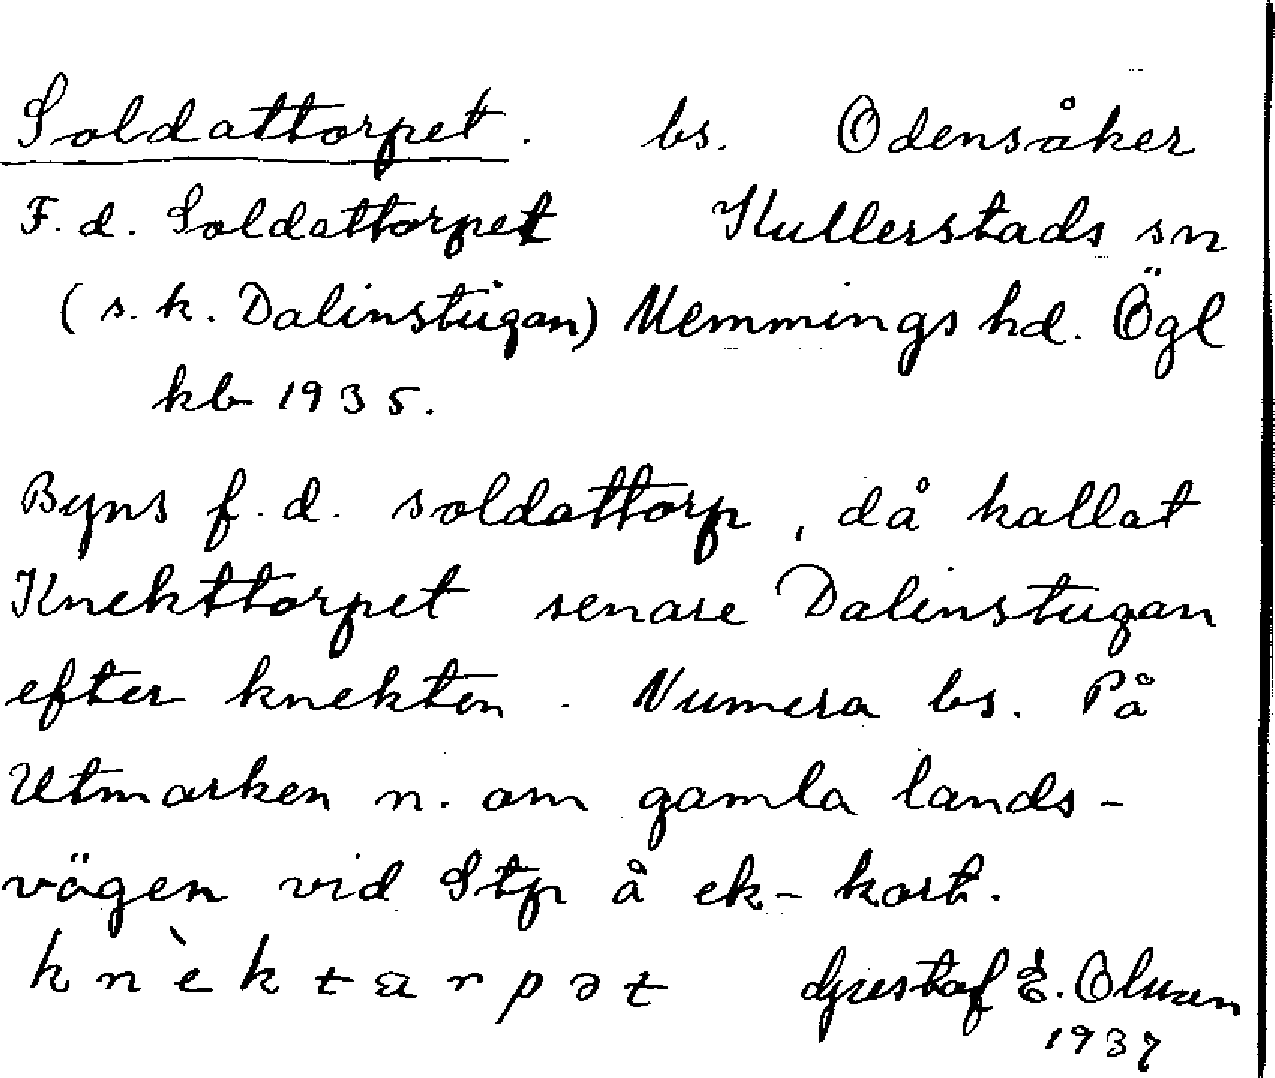 Soldattorpet. bs. Odensåker
F. d. Soldattorpet Kullerstads sn
(s. k. Dalinstugan) Memmings hd. Ögl
kb 1935.
Byns f. d. soldattorp, då kallat
Knekttorpet senare Dalinstugan
efter knekten. Numera bs. På
Utmarken n. om gamla lands-
vägen vid Stp å ek-kart.
knèktarpət Gustaf E. Olsson
1937